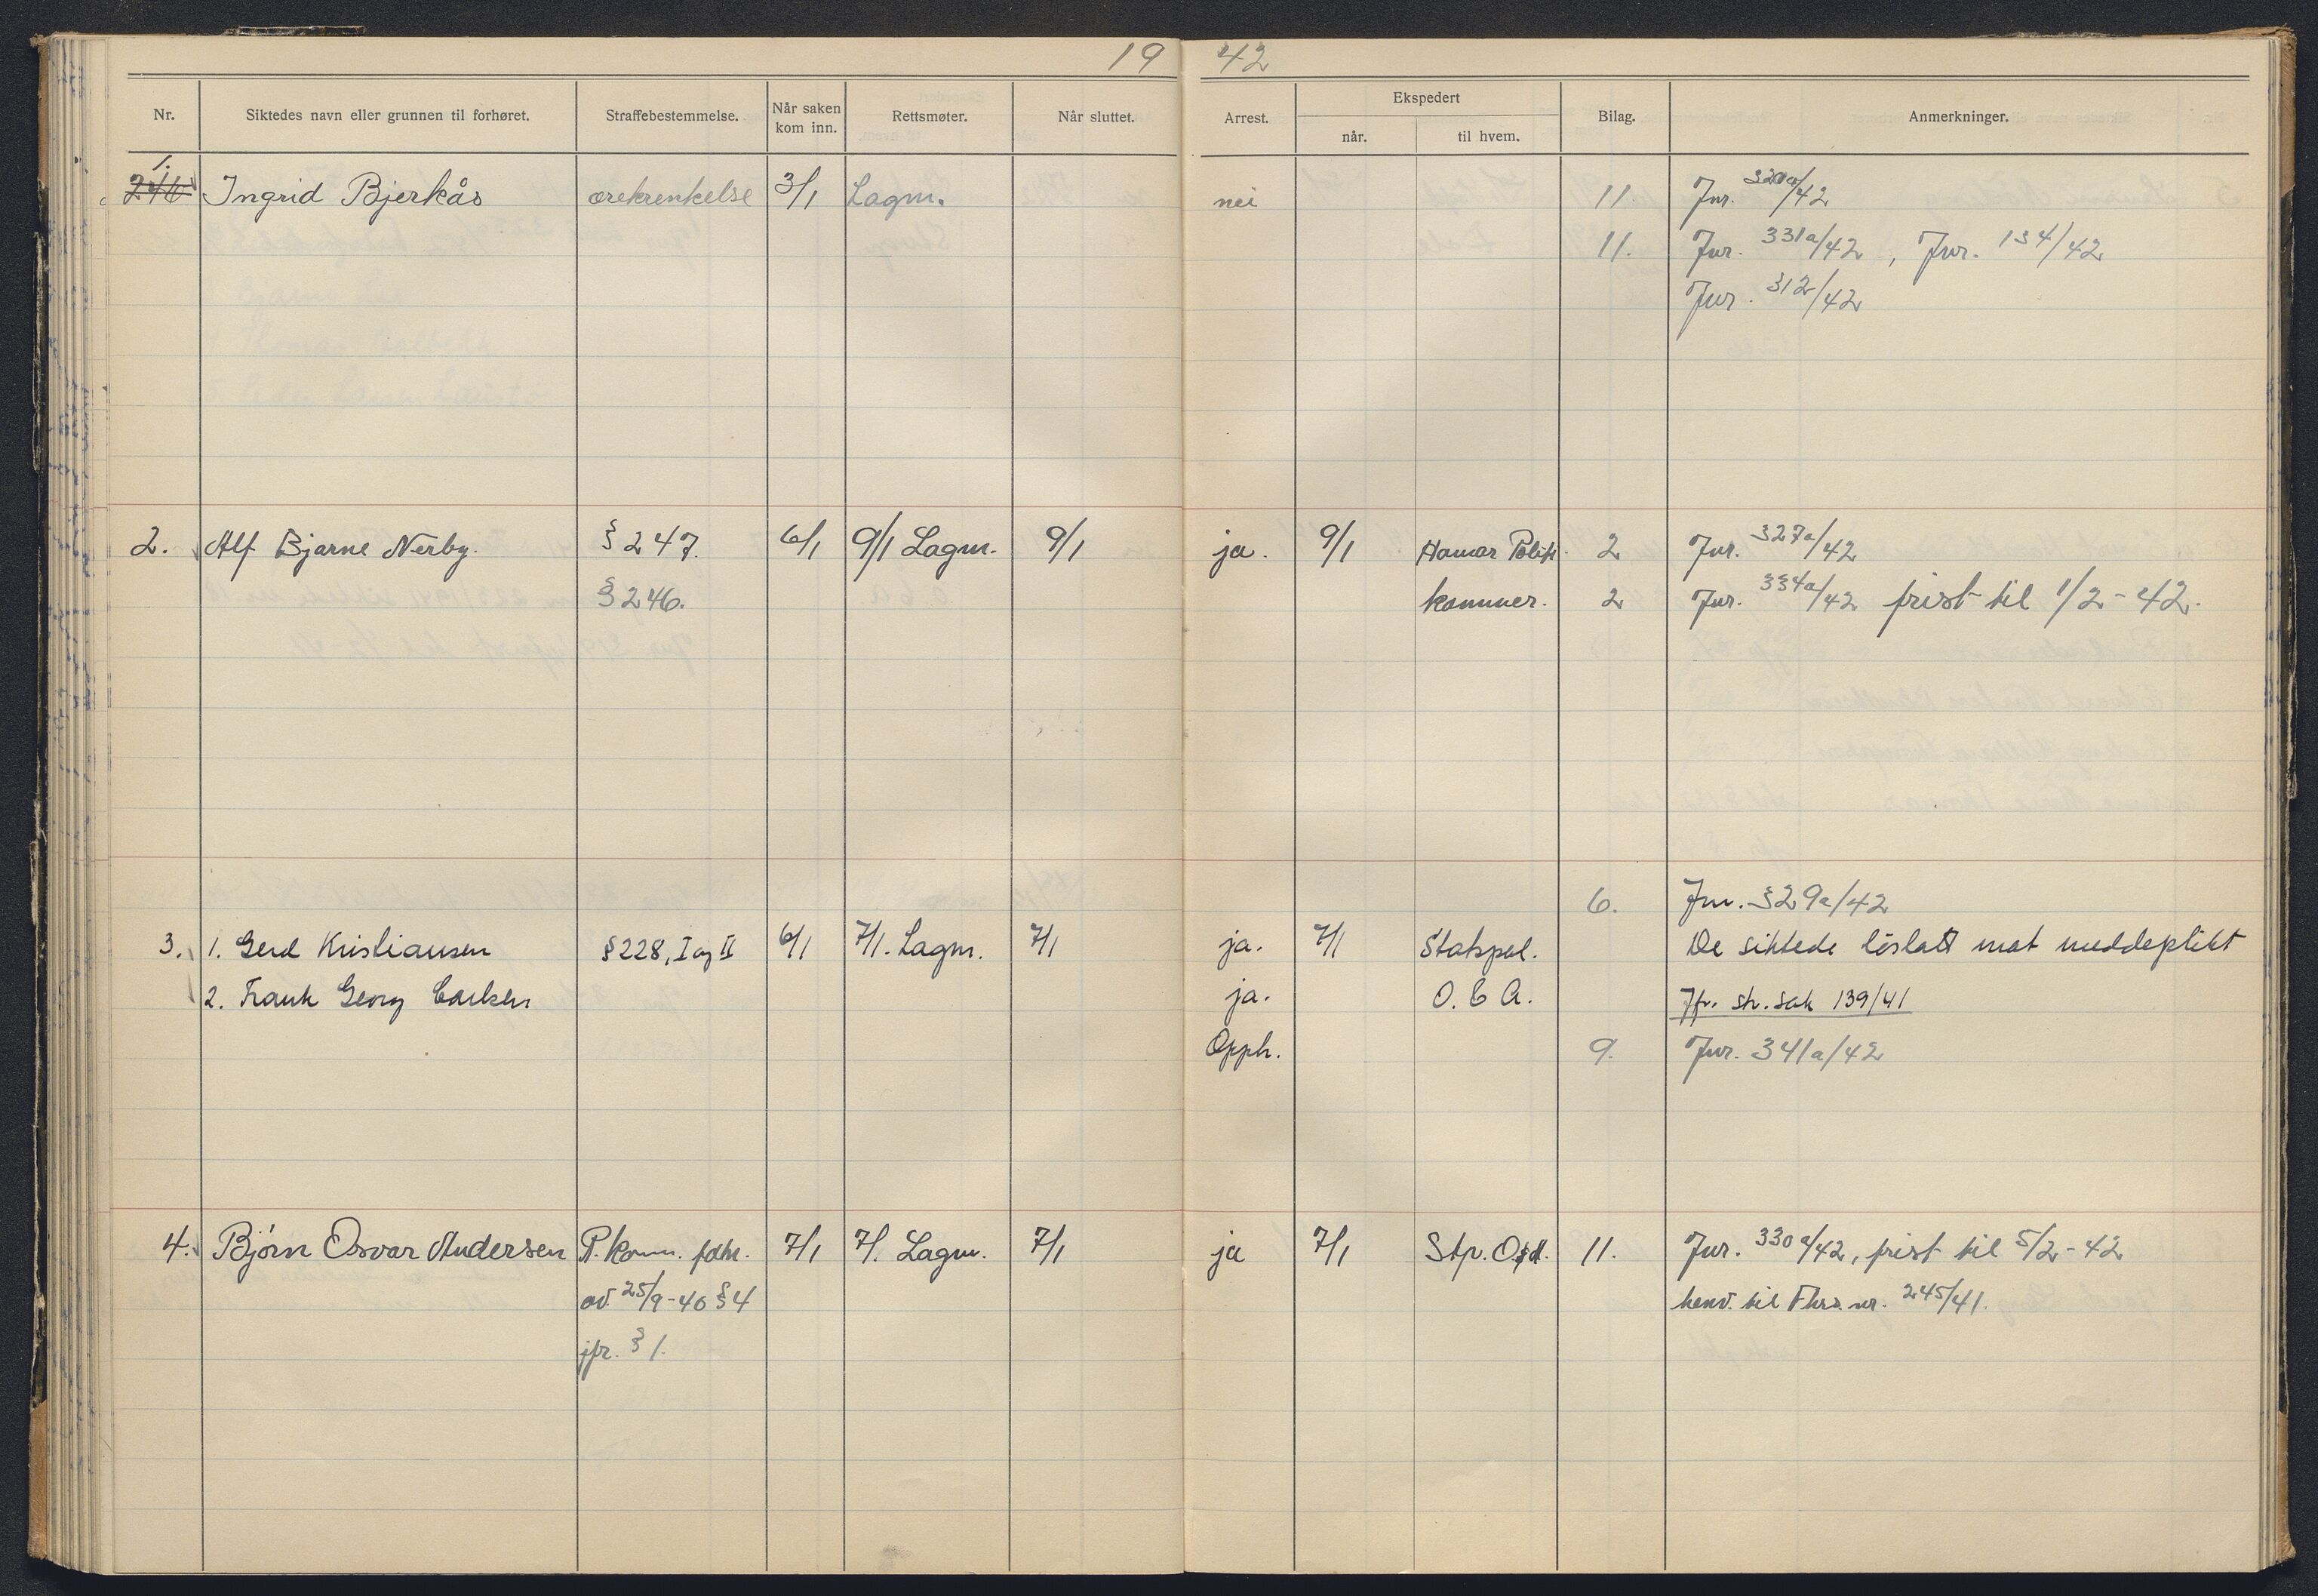 19 42
Nr. Siktedes navn eller grunnen til forhøret. Straffebestemmelse. Når saken kom inn. Rettsmøter. Når sluttet. Arrest. Ekspedert når. til hvem. Bilag. Anmerkninger.
1.
246 Ingrid Bjerkås ærekrenkelse 3/1 Lagm. nei 11. Jnr. 320a/42
11. Jnr. 331a/42, Jnr. 134/42
Jnr. 312/42
2. Alf Bjarne Nerby. § 247. 6/1 9/1 Lagm. 9/1 ja. 9/1 Hamar Politi- 2 Jnr. 327a/42
§ 246. kammer. 2 Jnr. 334a/42 frist til 1/2-42.
6. Jnr. 329a/42
3. 1. Gerd Kristiansen § 228, I og II 6/1 7/1. Lagm. 7/1 ja. 7/1 Statspol. De siktede löslatt mot meddeplikt
2. Frank Georg Carlsen ja. O. & A. Jfr. str. sak 139/41
Opph. 9. Jnr. 341a/42
4. Bjørn Osvar Andersen R. komm. fdhr. 7/1 7/1. Lagm. 7/1 ja 7/1 Stp. O&A. 11. Jnr. 330a/42, frist til 5/2-42
av 25/9-40 § 4 henv. til Fhrs. nr. 245/41.
jfr. § 1.